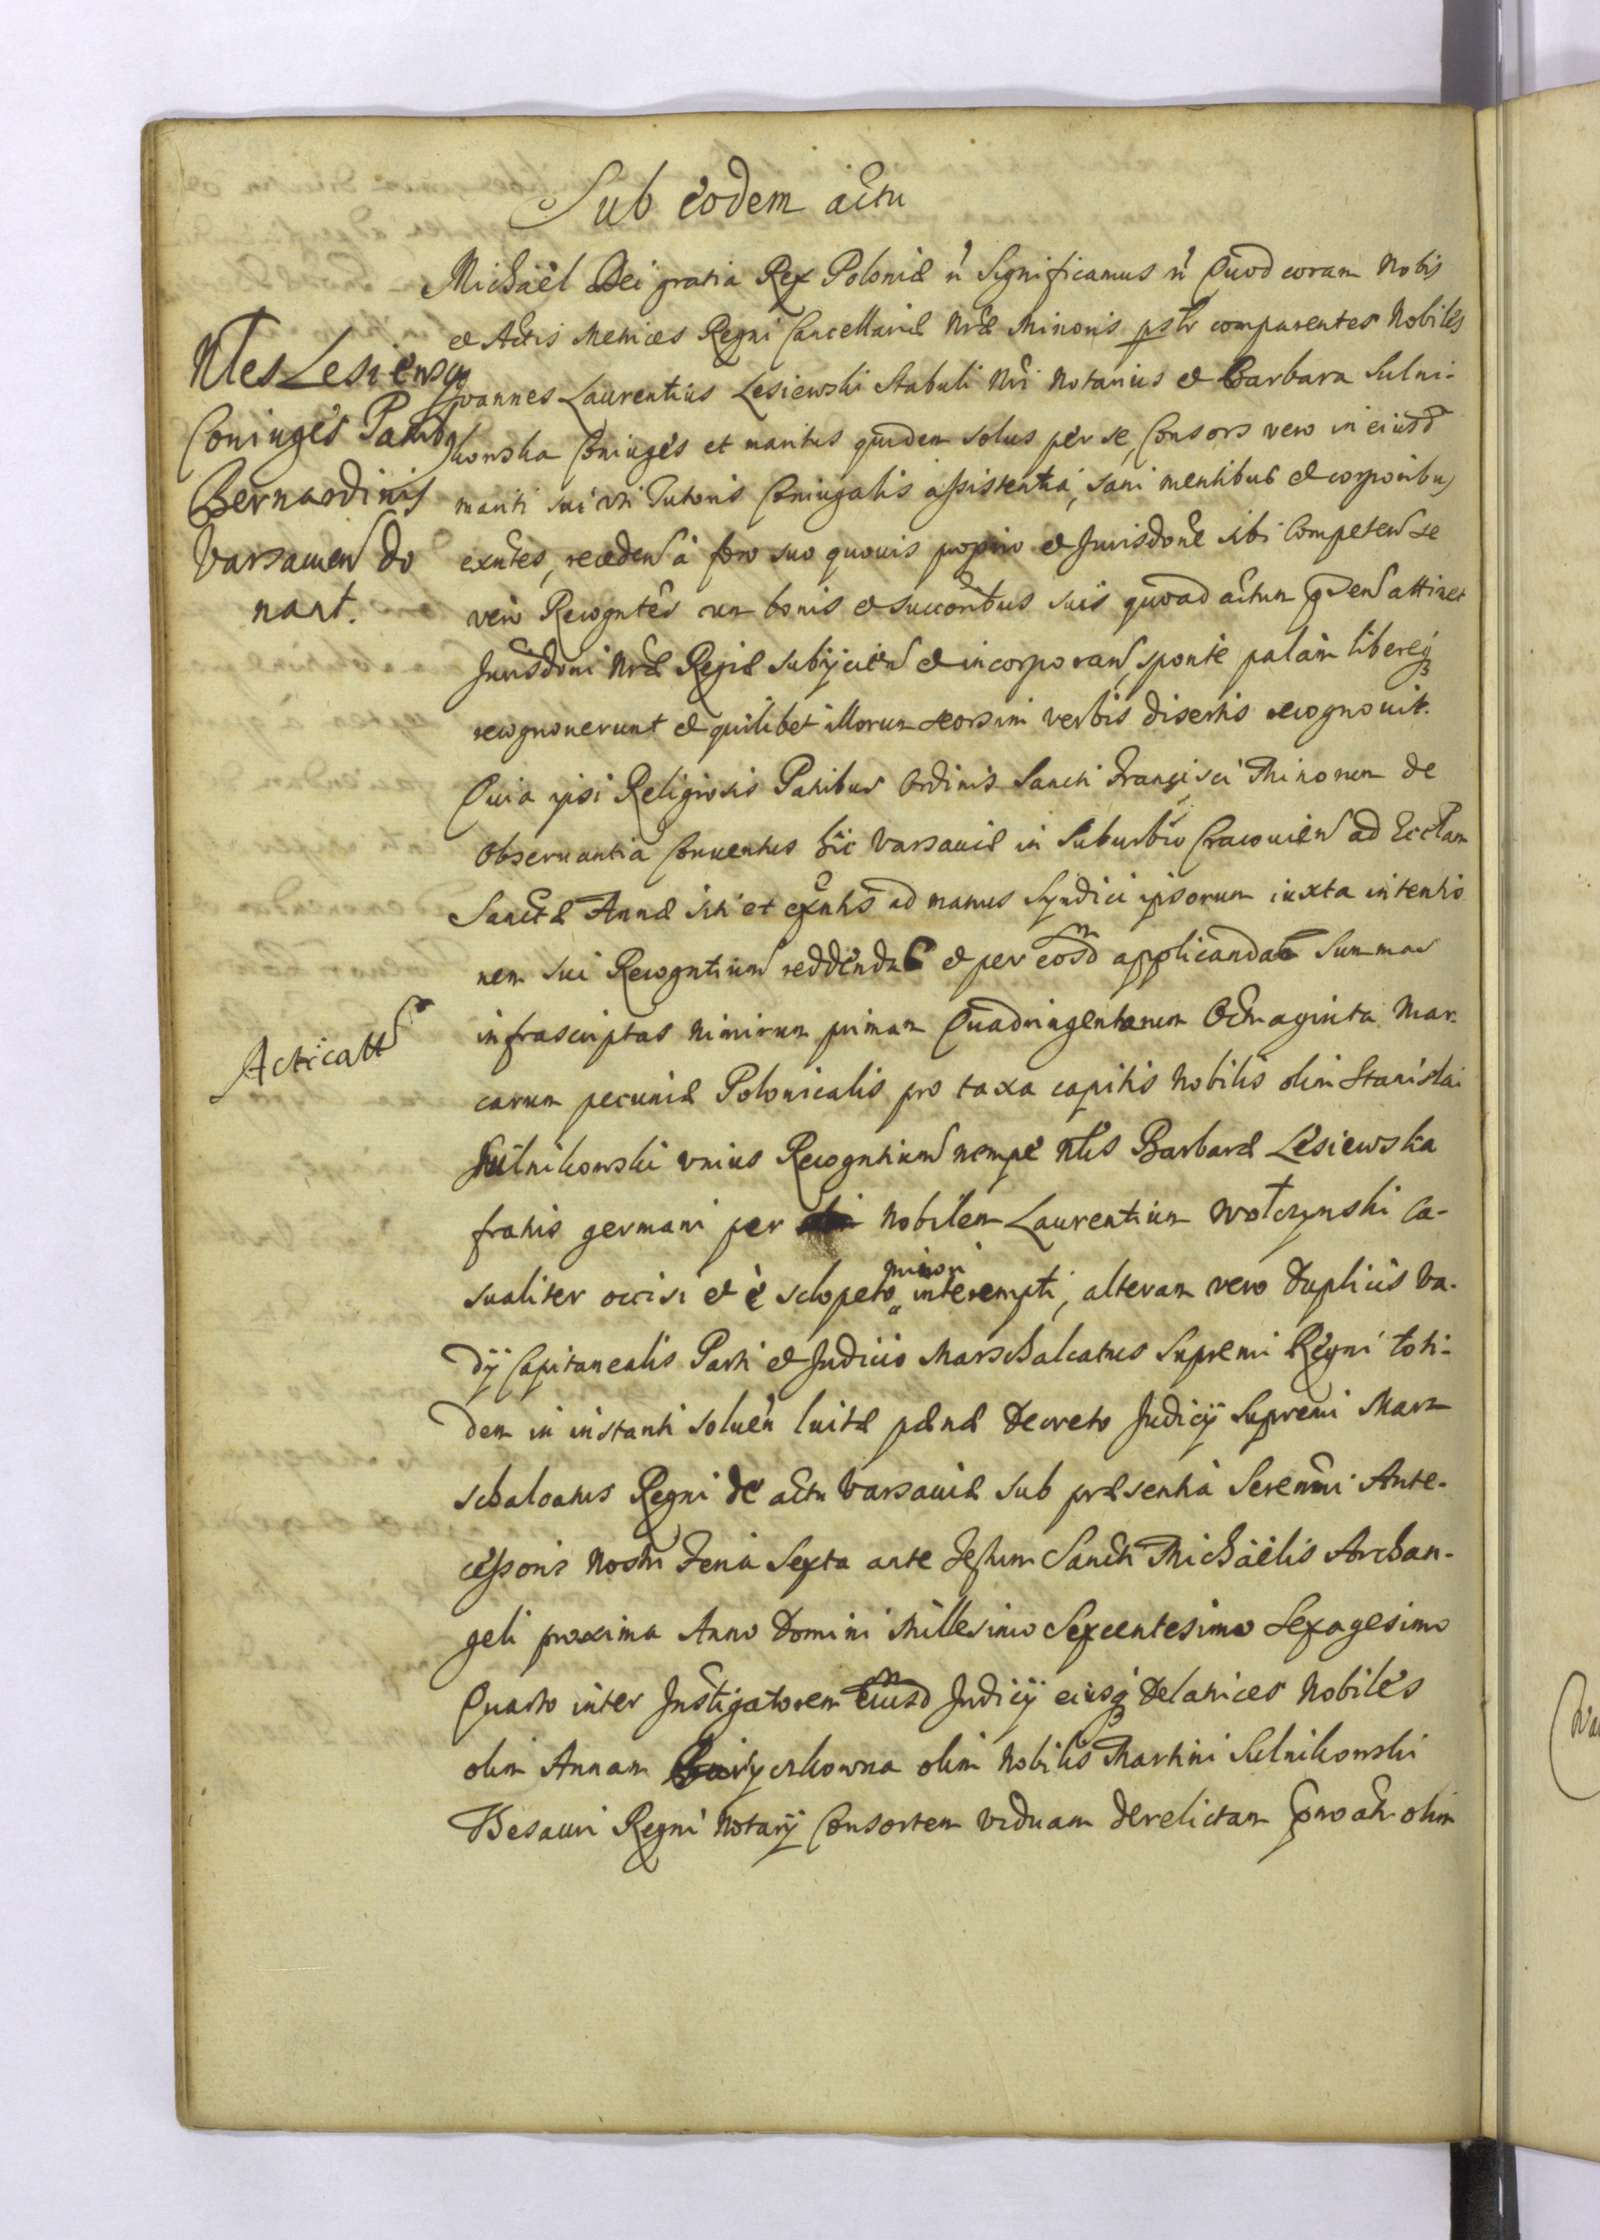 Sub eodem actu
Michaël Dei gratia Rex Poloniæ &c Significamus &c Quod coram Nobis
et Actis Metrices Regni Cancellariæ Nræ Minoris psltr comparentes Nobiles
Nles Lesiewscy
Joannes Laurentius Lesiewski Stabuli Nri Notarius et Barbara Sulni-
Coniuges Patribus
kowska Coniuges et maritus quidem solus per se, Consors vero in eiusd
Bernardinis
mariti sui uti Tutoris Coniugalis assistentia, sani mentibus et corporibus
Varsavien do
exntes, receden à foro suo quovis proprio et Jurisdone sibi competen se
nant.
vero Recogntes cum bonis et succoribus suis quoad actum pnsen attinet
Jurisdoni Nræ Regiæ subijcien et incorporan, sponte palàm libereq
recognoverunt et quilibet illorum seorsim verbis disertis recognovit.
Quia ipsi Religiosis Patribus Ordinis Sancti Francisci Minorum de
Observantia Conventus hic Varsaviæ in Suburbio Cracovien ad Ecclam
Sanctæ Annæ siti et exntis ad manus Syndici ipsorum iuxta intentio
nem sui Recogntium reddendas et per eosd applicandas summas
infrascriptas nimirum primam Quadringentarum Octuaginta Mar-
Acticatt
carum pecuniæ Polonicalis pro taxa capitis Nobilis olim Stanislai
Sulnikowski unius Recogntium nempe Nlis Barbaræ Lesiewska
fratris germani per Nobilem Laurentium Wołczynski ca-
sualiter occisi et è sclopeto minori interempti, alteram vero duplicis va-
dij Capitanealis Parti et Judicio Marschalcatus Supremi Regni toti-
dem in instanti soluen luitæ pænæ Decreto Judicij Supremi Mar-
schalcatus Regni de actu Varsaviæ sub præsentia Serenmi Ante-
cessoris Nostri Feria Sexta ante Festum Sancti Michaëlis Archan-
geli proxima Anno Domini Millesimo Sexcentesimo Sexagesimo
Quarto inter Instigatorem eiusd Judicij eiusq Delatrices Nobiles
olim Annam olim Nobilis Martini Sulnikowski
Thesauri Regni Notarij Consortem viduam derelictam olim